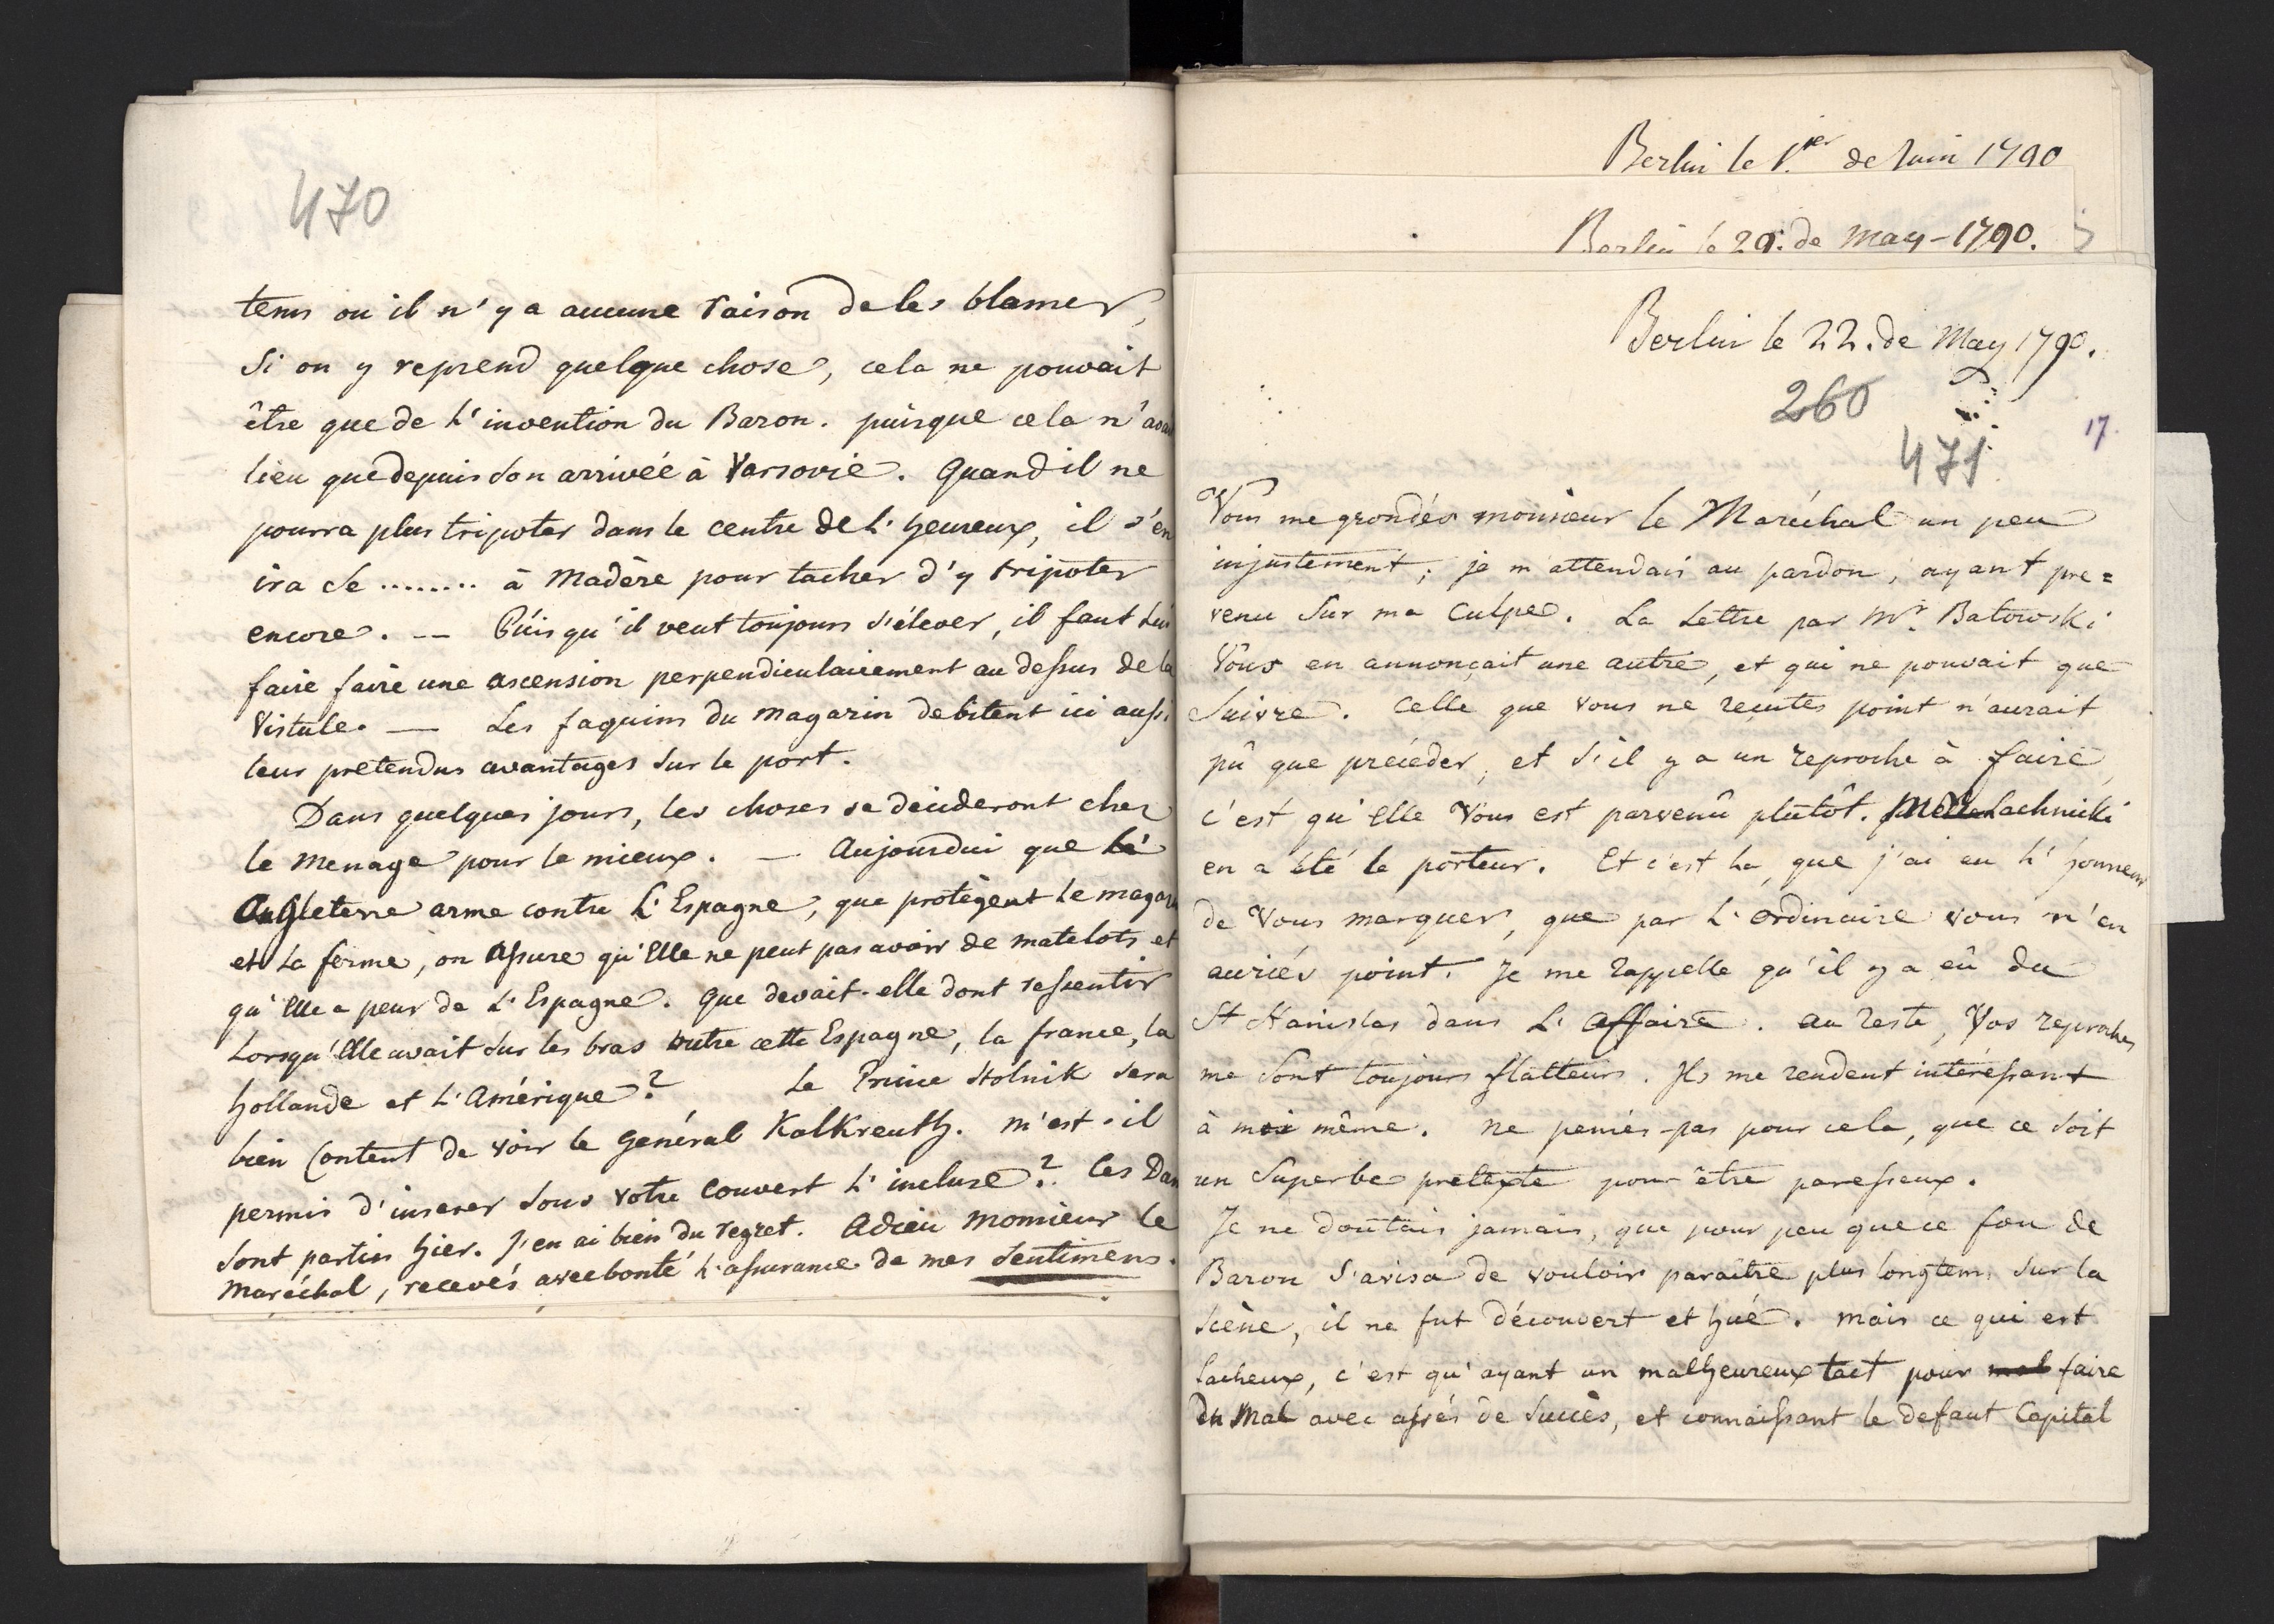 470
tems ou il n'y a aucune raison de les blamer,
Si on y reprend quelque chose, cela ne pouvait
être que de L'invention du Baron. puisque cela n'avai
lieu que depuis son arrivéé à Varsovie. Quand il ne
pourra plus tripoter dans le centre de L'heureux, il s'en
ira se ........ à Madère pour tacher d'y tripoter
encore. — Puisqu'il veut toujours s'élever, il faut Lui
faire faire une ascension perpendiculairement au dessus de la
Vistule. — Les faquins du magazin debitent ici aussi
leur pretendus avantages sur le port.
Dans quelques jours, les choses se décideront chez
le menage pour le mieux. — Aujourdui que
Angleterre arme contre L'Espagne, que protègent le magaz
et La ferme, on assure qu'Elle ne peut pas avoir de matelots et
qu'Elle a peur de L'Espagne. Que devait-elle dont ressentir
Lorsqu'Elle avait sur les bras outre cette Espagne, la france, la
hollande et L'Amérique? Le Prince Stolnik sera
bien Content de voir le Général Kalkreuth. M'est-il
permis d'inserer sous votre Couvert L'incluse? Ces Dam
sont parties hier. J'en ai bien du regret. Adieu Monsieur le
Maréchal, recevés avec bonté L'assurance de mes Sentimens.
Berlin le 1.ier de Juin 1790
Berlin le 29. de May - 1790.
Berlin le 22. de May 1790.
260
471
17.
Vous me grondés monsieur le Maréchal un peu
injustement; je m'attendais au pardon, ayant pre=
venu Sur ma Culpe. La Lettre par Mr. Batowski
Vous en annonçait une autre, et qui ne pouvait que
Suivre. Celle que vous ne recutes point n'aurait
pû que précéder, et s'il y a un reproche à faire,
c'est qu'elle Vous est parvenû plutôt. Lachnicki
en a été le porteur. Et c'est La, que j'ai eu L'honneur
de Vous marquer, que par L'ordinaire vous n'en
auriés point. Je me rappelle qu'il y a eû du
St Stanislas dans L'affaire. au reste, Vos reproches
me sont toujours flatteurs. Ils me rendent intéressant
à moi même. Ne pensés-pas pour cela, que ce soit
un Superbe pretexte pour être paresseux.
Je ne doutais jamais, que pour peu que ce fou de
Baron S'avisa de vouloir paraitre plus longtems Sur la
Scène, il ne fut découvert et hué. Mais ce qui est
facheux, c'est qu'ayant un malheureux tact pour mal faire
du Mal avec assés de Succès, et connaissant le defaut Capital